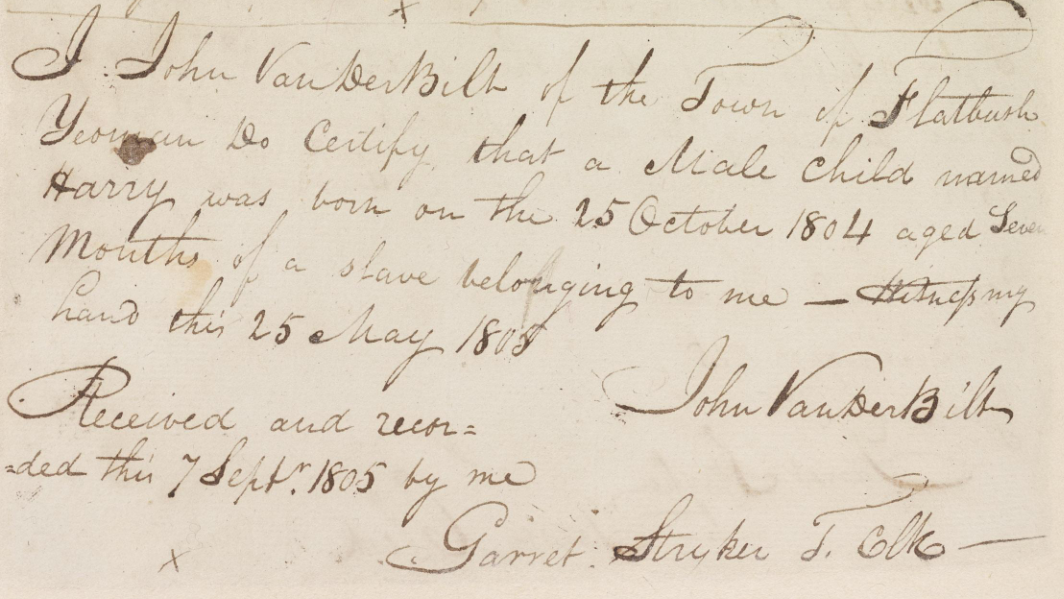 I John VanDerBilt of the Town of Flatbush
Yeoman Do Certify that a Male Child named
Harry was born on the 25 October 1804 aged Seven
Months of a slave belonging to me — Witness my
hand this 25 May 1805
John VanDerBilt
Received and recor=
=ded this 7 Septr. 1805 by me
Garret Stryker T. Clk —
x